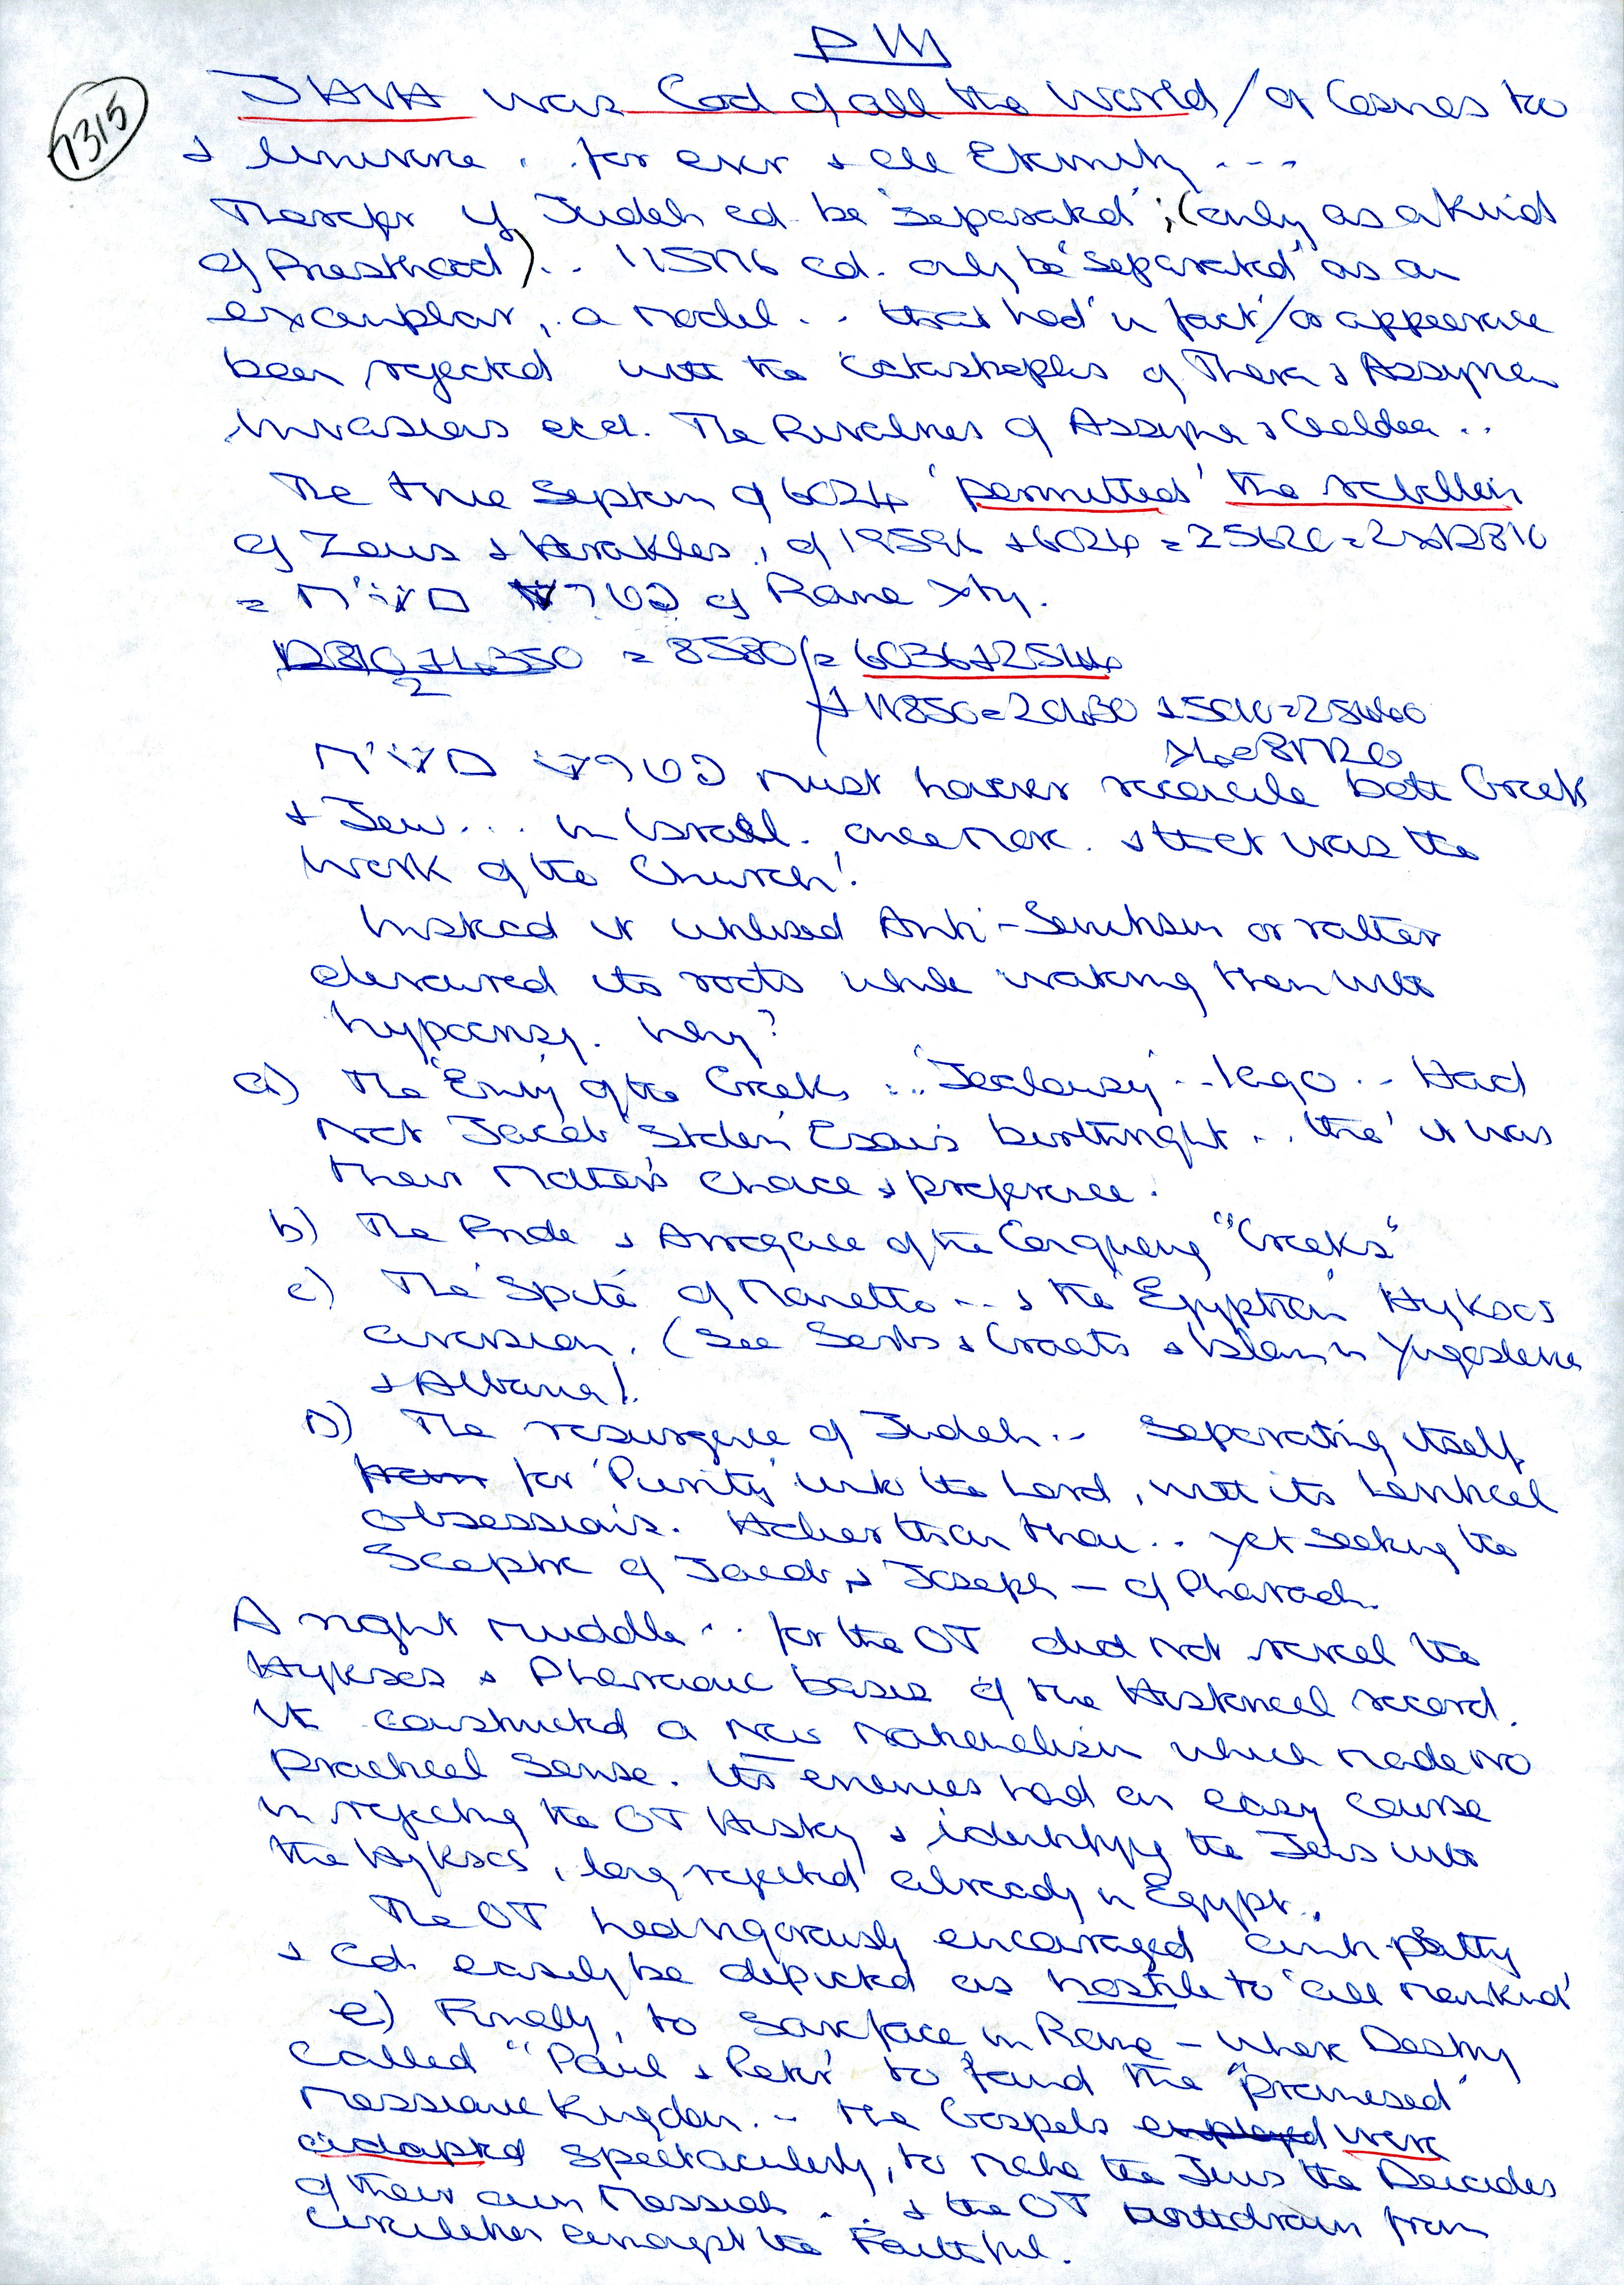 PM
7315
JAVA was God of all the World / or Cosmos too
& Universe . . for ever & all Eternity ...
Therefor if Judah cd. be 'separated'; (only as a kind
of Priesthood) . . cd. only be "separated" as an
exemplar, a model . . that had in fact / or appearance
been rejected with the Catastrophes of Thera & Assyrian
Invasions etc. The Rivalries of Assyria & Chaldea ..
The true Septem of 6024 'permitted' the rebellion
of Zeus & Herakles, of 19596 + 6024 = 25620 = 2x12810
= of Rome Xty.
12810 + 4350 = 8580 / = 6036 + 2544
2
+ 11850 = 20430
must however reconcile both Greek
& Jew ... in Israel. once more. & that was the
work of the Church!
Instead it utilised Anti-Semitism or rather
devoured its roots while making them into
hypocrisy. Why?
a) The "Envy of the Greeks ... "Jealousy" .. Iago .. Had
not Jacob 'Stolen' Esau's birthright .. tho' it was
their Mother's choice & preference.
b) The Pride & Arrogance of the Conquering "Greeks"
c) The 'Spite' of Manetho ... & the 'Egyptian' Hyksos
aversion. (See Serbs & Croats & Islam in Yugoslavia
& Albania).
D) The resurgence of Judah .. Separating itself
from for 'Purity' unto the Lord, with its Levitical
obsessions. Holier than thou .. yet seeking the
Sceptre of Jacob, & Joseph — of Pharaoh.
A right muddle .. for the OT did not reveal the
Hyksos & Pharaonic basis of the Historical record.
It constructed a New Nationalism which made no
practical sense. Its enemies had an easy course
in rejecting the OT History & identifying the Jews with
the Hyksos, long rejected already in Egypt.
The OT encouraged antipathy
& cd. easily be depicted as hostile to 'all Mankind'
e) Finally, to Save face in Rome – where Destiny
called "Paul & Peter" to found the "promised"
Messianic Kingdom .. the Gospels employed were
adapted spectacularly, to make the Jews the Deicides
of their own Messiah . . . & the OT withdrawn from
circulation amongst the Faithful.